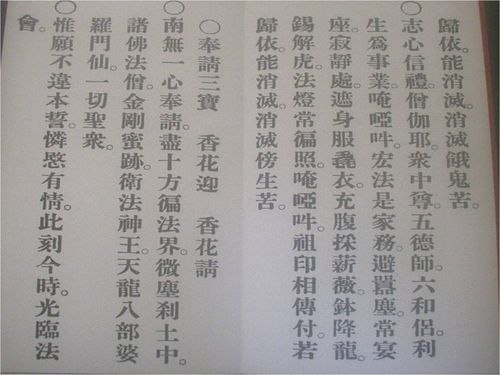 歸依。能消滅。消滅餓鬼苦。
○志心信禮。僧伽耶。衆中尊。五德師。六和侶。利
生爲事業。唵啞吽。宏法是家務。避囂塵。常宴
座。寂靜處。遮身服毳衣。充腹採薪薇。鉢降龍。
錫解虎。法燈常徧照。唵啞吽。祖印相傳付。若
歸依。能消滅。消滅傍生苦。
○奉請三寶 香花迎 香花請
○南無一心奉請。盡十方。徧法界。微塵刹土中。
諸佛法僧。金剛蜜跡。衛法神王。天龍八部。婆
羅門仙。一切聖衆。
○惟願不違本誓。憐愍有情。此刻今時。光臨法
會。